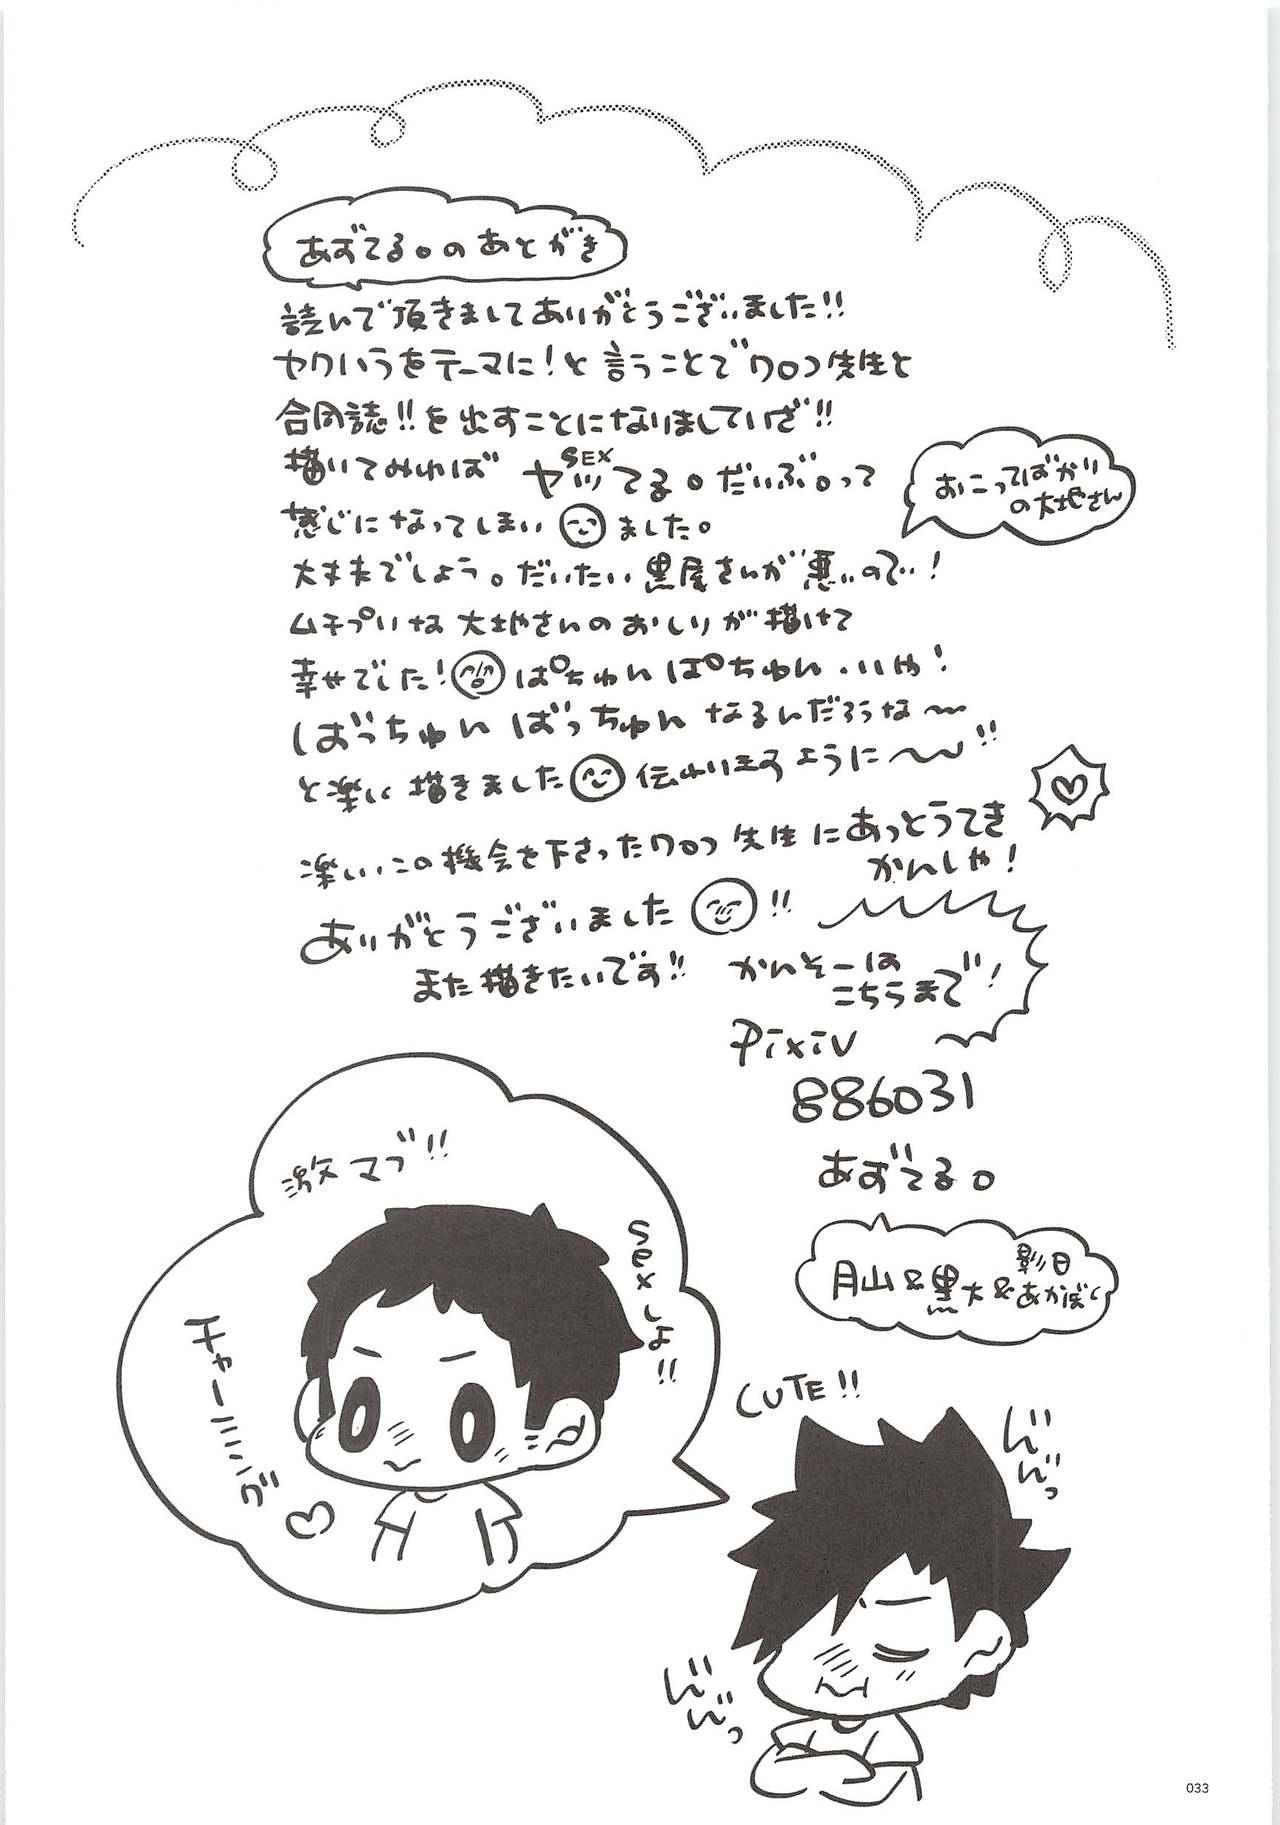 あずてる。のあとがき
読んで頂きましてありがとうございました!!
ヤクいうをテーマに!と言うことでワロつ先生と
合同誌!!を出すことになりましていざ!!
描いてみれば ヤッてる。だいぶ。って
SEX
感じになってしまいました。
おこってばかり
の大地さん
大丈夫でしょう。だいたい黒尾さんが悪いので!
ムチプリな大地さんのおしりが描けて
幸せでした!ぱちゅんぱちゅん..いや!
ばっちゅんばっちゅんなるんだろうな〜
と楽しい描きました伝わりますように〜!!
楽しいこの機会を下さったワロつ先生にあっとうてき
かんしゃ!
ありがとうございました!!
また描きたいです!!
かんそーは
こちらまで!
Pixiv
886031
あずてる。
影日
月山&黒大&あかぼく
激マブ!!
sexしよ!!
チャーミング
CUTE!!
じん
じんっ
じん
じんっ
033